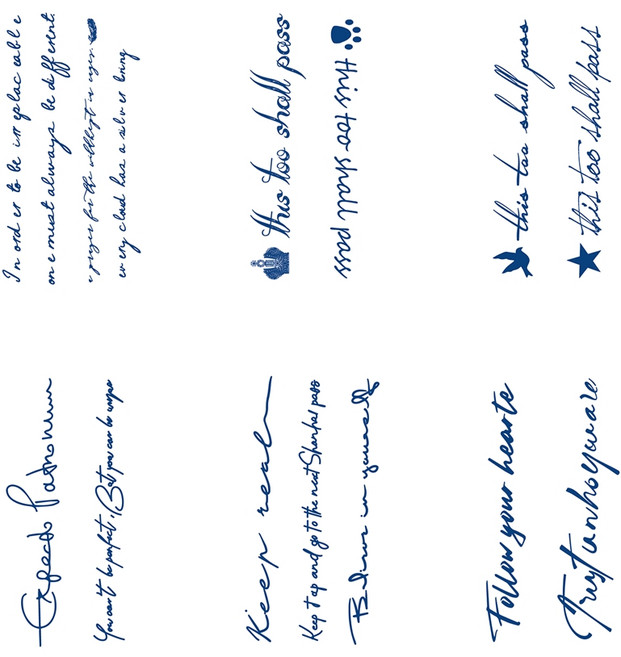 In order to be irreplaceable
one must always be different.
a prayer for the
every cloud has a silver lining
this too shall pass
this too shall pass
this too shall pass
this too shall pass
Expecto Patronum
You can't be perfect, But you can be unique
Keep real
Keep it up and go to the next Shanhai pass
Believe in yourself
Follow your hearte
Trust in who you are